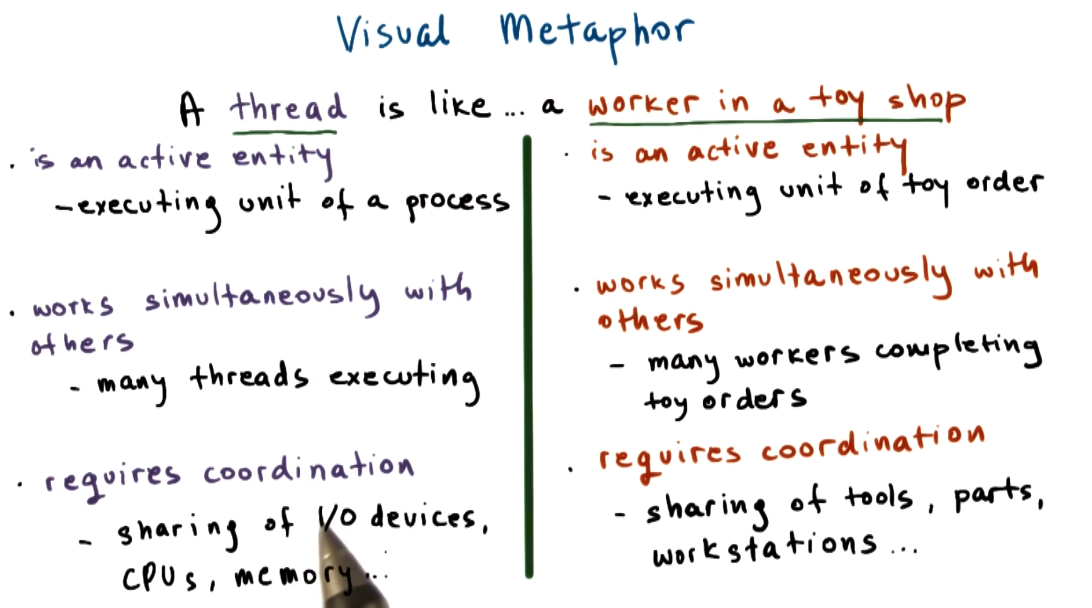 Visual Metaphor
A thread is like... a worker in a toy shop
. is an active entity
- executing unit of a process
. works simultaneously with
others
- many threads executing
. requires coordination
- sharing of I/O devices,
CPUs, memory...
. is an active entity
- executing unit of toy order
. works simultaneously with
others
- many workers completing
toy orders
. requires coordination
- sharing of tools, parts,
workstations...